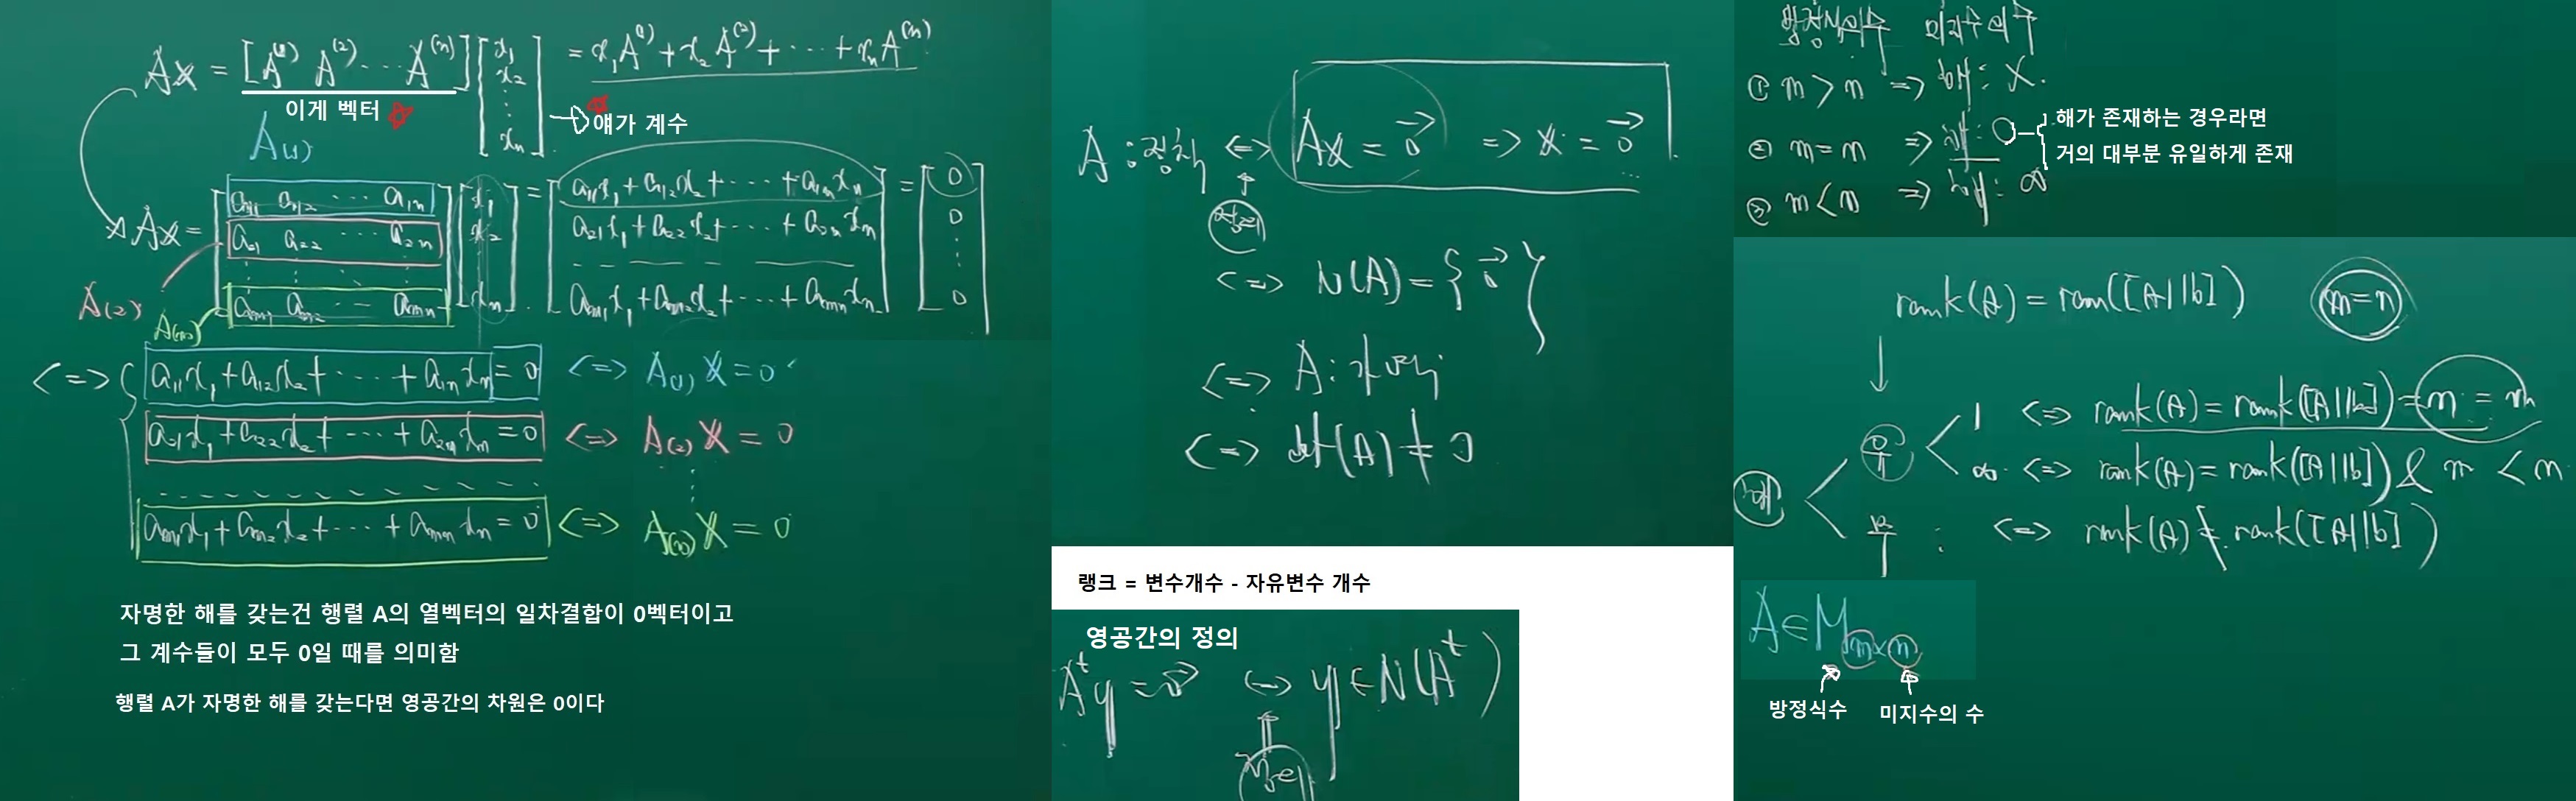 Ax = [A⁽¹⁾ A⁽²⁾ ⋯ A⁽ⁿ⁾] [x₁ x₂ ⋮ xₙ] = x₁A⁽¹⁾ + x₂A⁽²⁾ + ⋯ + xₙA⁽ⁿ⁾
이게 벡터
얘가 계수
A₍₁₎
Ax = [a₁₁ a₁₂ ⋯ a₁ₙ] [x₁] = [a₁₁x₁ + a₁₂x₂ + ⋯ + a₁ₙxₙ] = [0]
[a₂₁ a₂₂ ⋯ a₂ₙ] [x₂] [a₂₁x₁ + a₂₂x₂ + ⋯ + a₂ₙxₙ] [0]
[aₘ₁ aₘ₂ ⋯ aₘₙ] [xₙ] [aₘ₁x₁ + aₘ₂x₂ + ⋯ + aₘₙxₙ] [0]
A₍₂₎
A₍ₘ₎
<=> { a₁₁x₁ + a₁₂x₂ + ⋯ + a₁ₙxₙ = 0 <=> A₍₁₎x = 0
a₂₁x₁ + a₂₂x₂ + ⋯ + a₂ₙxₙ = 0 <=> A₍₂₎x = 0
⋮
aₘ₁x₁ + aₘ₂x₂ + ⋯ + aₘₙxₙ = 0 <=> A₍ₘ₎x = 0
자명한 해를 갖는건 행렬 A의 열벡터의 일차결합이 0벡터이고
그 계수들이 모두 0일 때를 의미함
행렬 A가 자명한 해를 갖는다면 영공간의 차원은 0이다
A : 정칙 <=> Ax = 0⃗ => x = 0⃗
<=> N(A) = { 0⃗ }
<=> A : 가역
<=> det(A) ≠ 0
랭크 = 변수개수 - 자유변수 개수
영공간의 정의
Aᵗy = 0⃗ <=> y ∈ N(Aᵗ)
정의
방정식의수 미지수의수
① m > n => 해 : X.
② m = n => 해 : O
해가 존재하는 경우라면
거의 대부분 유일하게 존재
③ m < n => 해 : ∞
rank(A) = ran([A|b]) m = n
해
유 1 <=> rank(A) = rank([A|b]) = n = m
∞ <=> rank(A) = rank([A|b]) & m < n
무 : <=> rank(A) ≠ rank([A|b])
A ∈ Mₘₓₙ
방정식수 미지수의 수